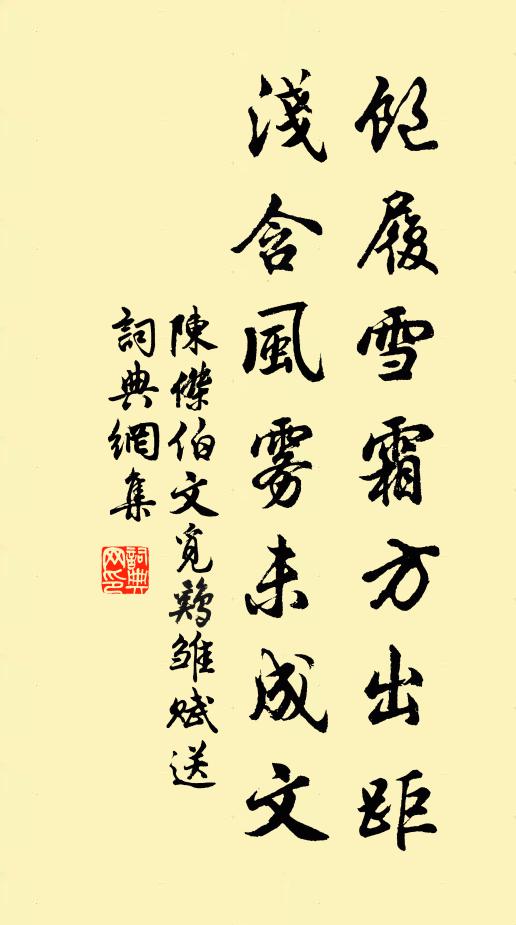 飽履雪霜方出距
淺含風雾未成文
陳傑伯文覓鷄雛賦送
詞典網集
詞典网印